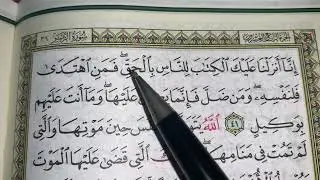 سُورَةُ الزُّمَرِ ٣٩
إِنَّا أَنزَلْنَا عَلَيْكَ الْكِتَٰبَ لِلنَّاسِ بِالْحَقِّ ۖ فَمَنِ اهْتَدَىٰ
فَلِنَفْسِهِ ۖ وَمَن ضَلَّ فَإِنَّمَا يَضِلُّ عَلَيْهَا ۖ وَمَا أَنتَ عَلَيْهِم
بِوَكِيلٍ ٤١ اللَّهُ حِينَ مَوْتِهَا وَالَّتِي
لَمْ تَمُتْ فِي مَنَامِهَا ۖ الَّتِي قَضَىٰ عَلَيْهَا الْمَوْتَ